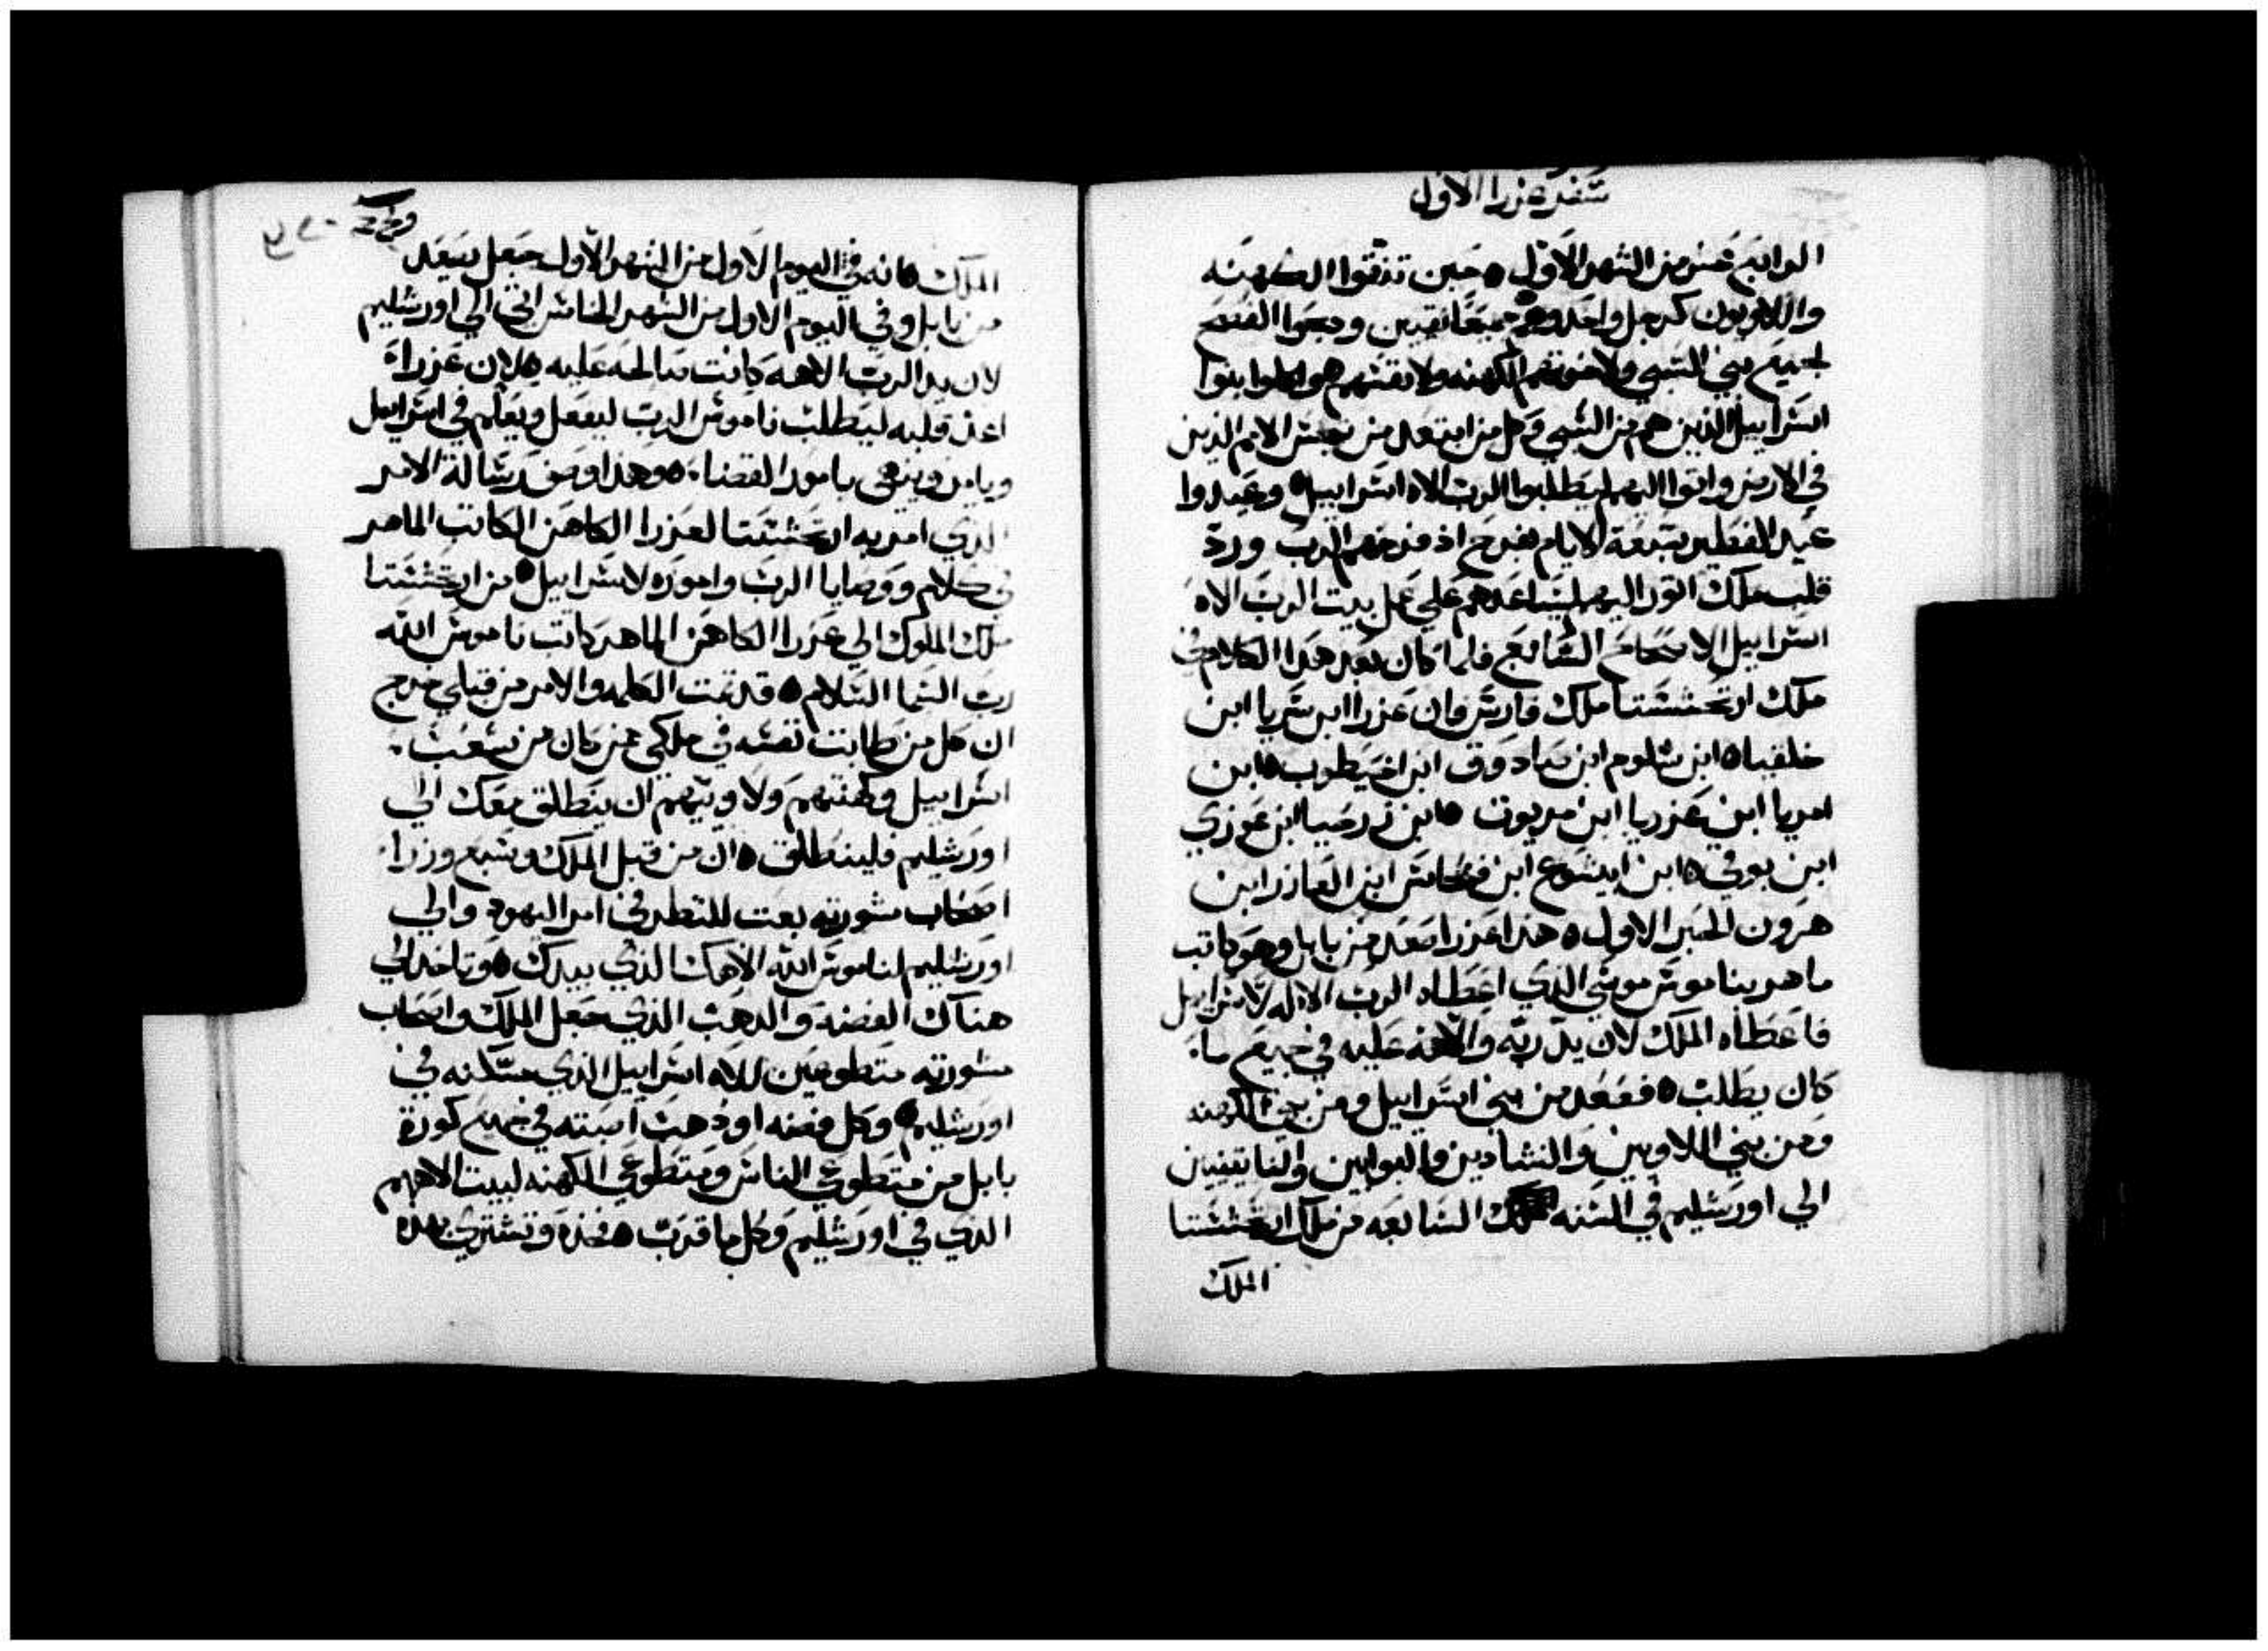 سفر عزرا الاول
الرابع عشر من الشهر الاول ه حين تنقوا الكهنه
واللاويون كرجل واحد وهم جميعا نقيين ودبحوا الفصح
لجميع بني السبي ولاخوتهم الكهنه ولانفسهم هو اكلوا بنوا
اسراييل الذين هم من السبي وكل من ابتعد من نجس الامم الذين
في الارض واتوا اليهم ليطلبوا الرب الاه اسراييل ه وعيدوا
عيد الفطير سبعة الايام بفرح اذ فرحهم الرب ورد
قلب ملك اتور اليهم ليساعدهم علي عمل بيت الرب الاه
اسراييل الاصحاح السابع فلما كان بعد هذا الكلام في
ملك ارتحششتا ملك فارس فان عزرا ابن سريا ابن
خلقيا ه ابن شلوم ابن صادوق ابن اخيطوب ه ابن
امريا ابن عزريا ابن مريوت ه ابن زرحيا ابن عوزي
ابن بوقي ه ابن ابيشوع ابن فنحاس ابن العازر ابن
هرون الحبر الاول ه هدا عزرا صعد من بابل وهو كاتب
ماهر بناموس موسي الدي اعطاه الرب الاله لاسراييل
فاعطاه الملك لان يد ربه والاهه عليه في جميع ما
كان يطلب ه فصعد من بني اسراييل ومن بني الكهنه
ومن بني اللاويين والنشادين والبوابين والناتينيين
الي اورشليم في السنه السابعه من ملك ارتحششتا
الملك
الملك ه انه في اليوم الاول من الشهر الاول جعل يصعد
من بابل وفي اليوم الاول من الشهر الخامس اتي الي اورشليم
لان يد الرب الاهه كانت صالحه عليه ه لان عزرا
اعد قلبه ليطلب ناموس الرب ليفعل ويعلم في اسراييل
ويامر وينهي بامور القضا ه وهدا وصف رسالة الامر
الدي امر به ارتحششتا لعزرا الكاهن الكاتب الماهر
في كلام ووصايا الرب واموره لاسراييل ه من ارتحششتا
ملك الملوك الي عزرا الكاهن الماهر كاتب ناموس الله
رب السما السلام ه قد تمت الكلمه والامر من قبلي خرج
ان كل من طابت نفسه في ملكي ممن كان من شعب
اسراييل وكهنتهم ولاويتهم ان ينطلق معك الي
اورشليم فلينطلق ه ان من قبل الملك وسبع وزرا
اصحاب مشورته بعت للنظر في امر اليهود والي
اورشليم لناموس الله الاهك الذي بيدك ه وتاخد الي
هناك الفضه والدهب الذي جعل الملك واصحاب
مشورته متطوعين لالاه اسراييل الذي مسكنه في
اورشليم ه وكل فضه او دهب اصبته في جميع كورة
بابل من متطوعي الناس ومتطوعي الكهنه لبيت الاههم
الدي في اورشليم وكل ما قدرت ه فخذه وتشتري بهده